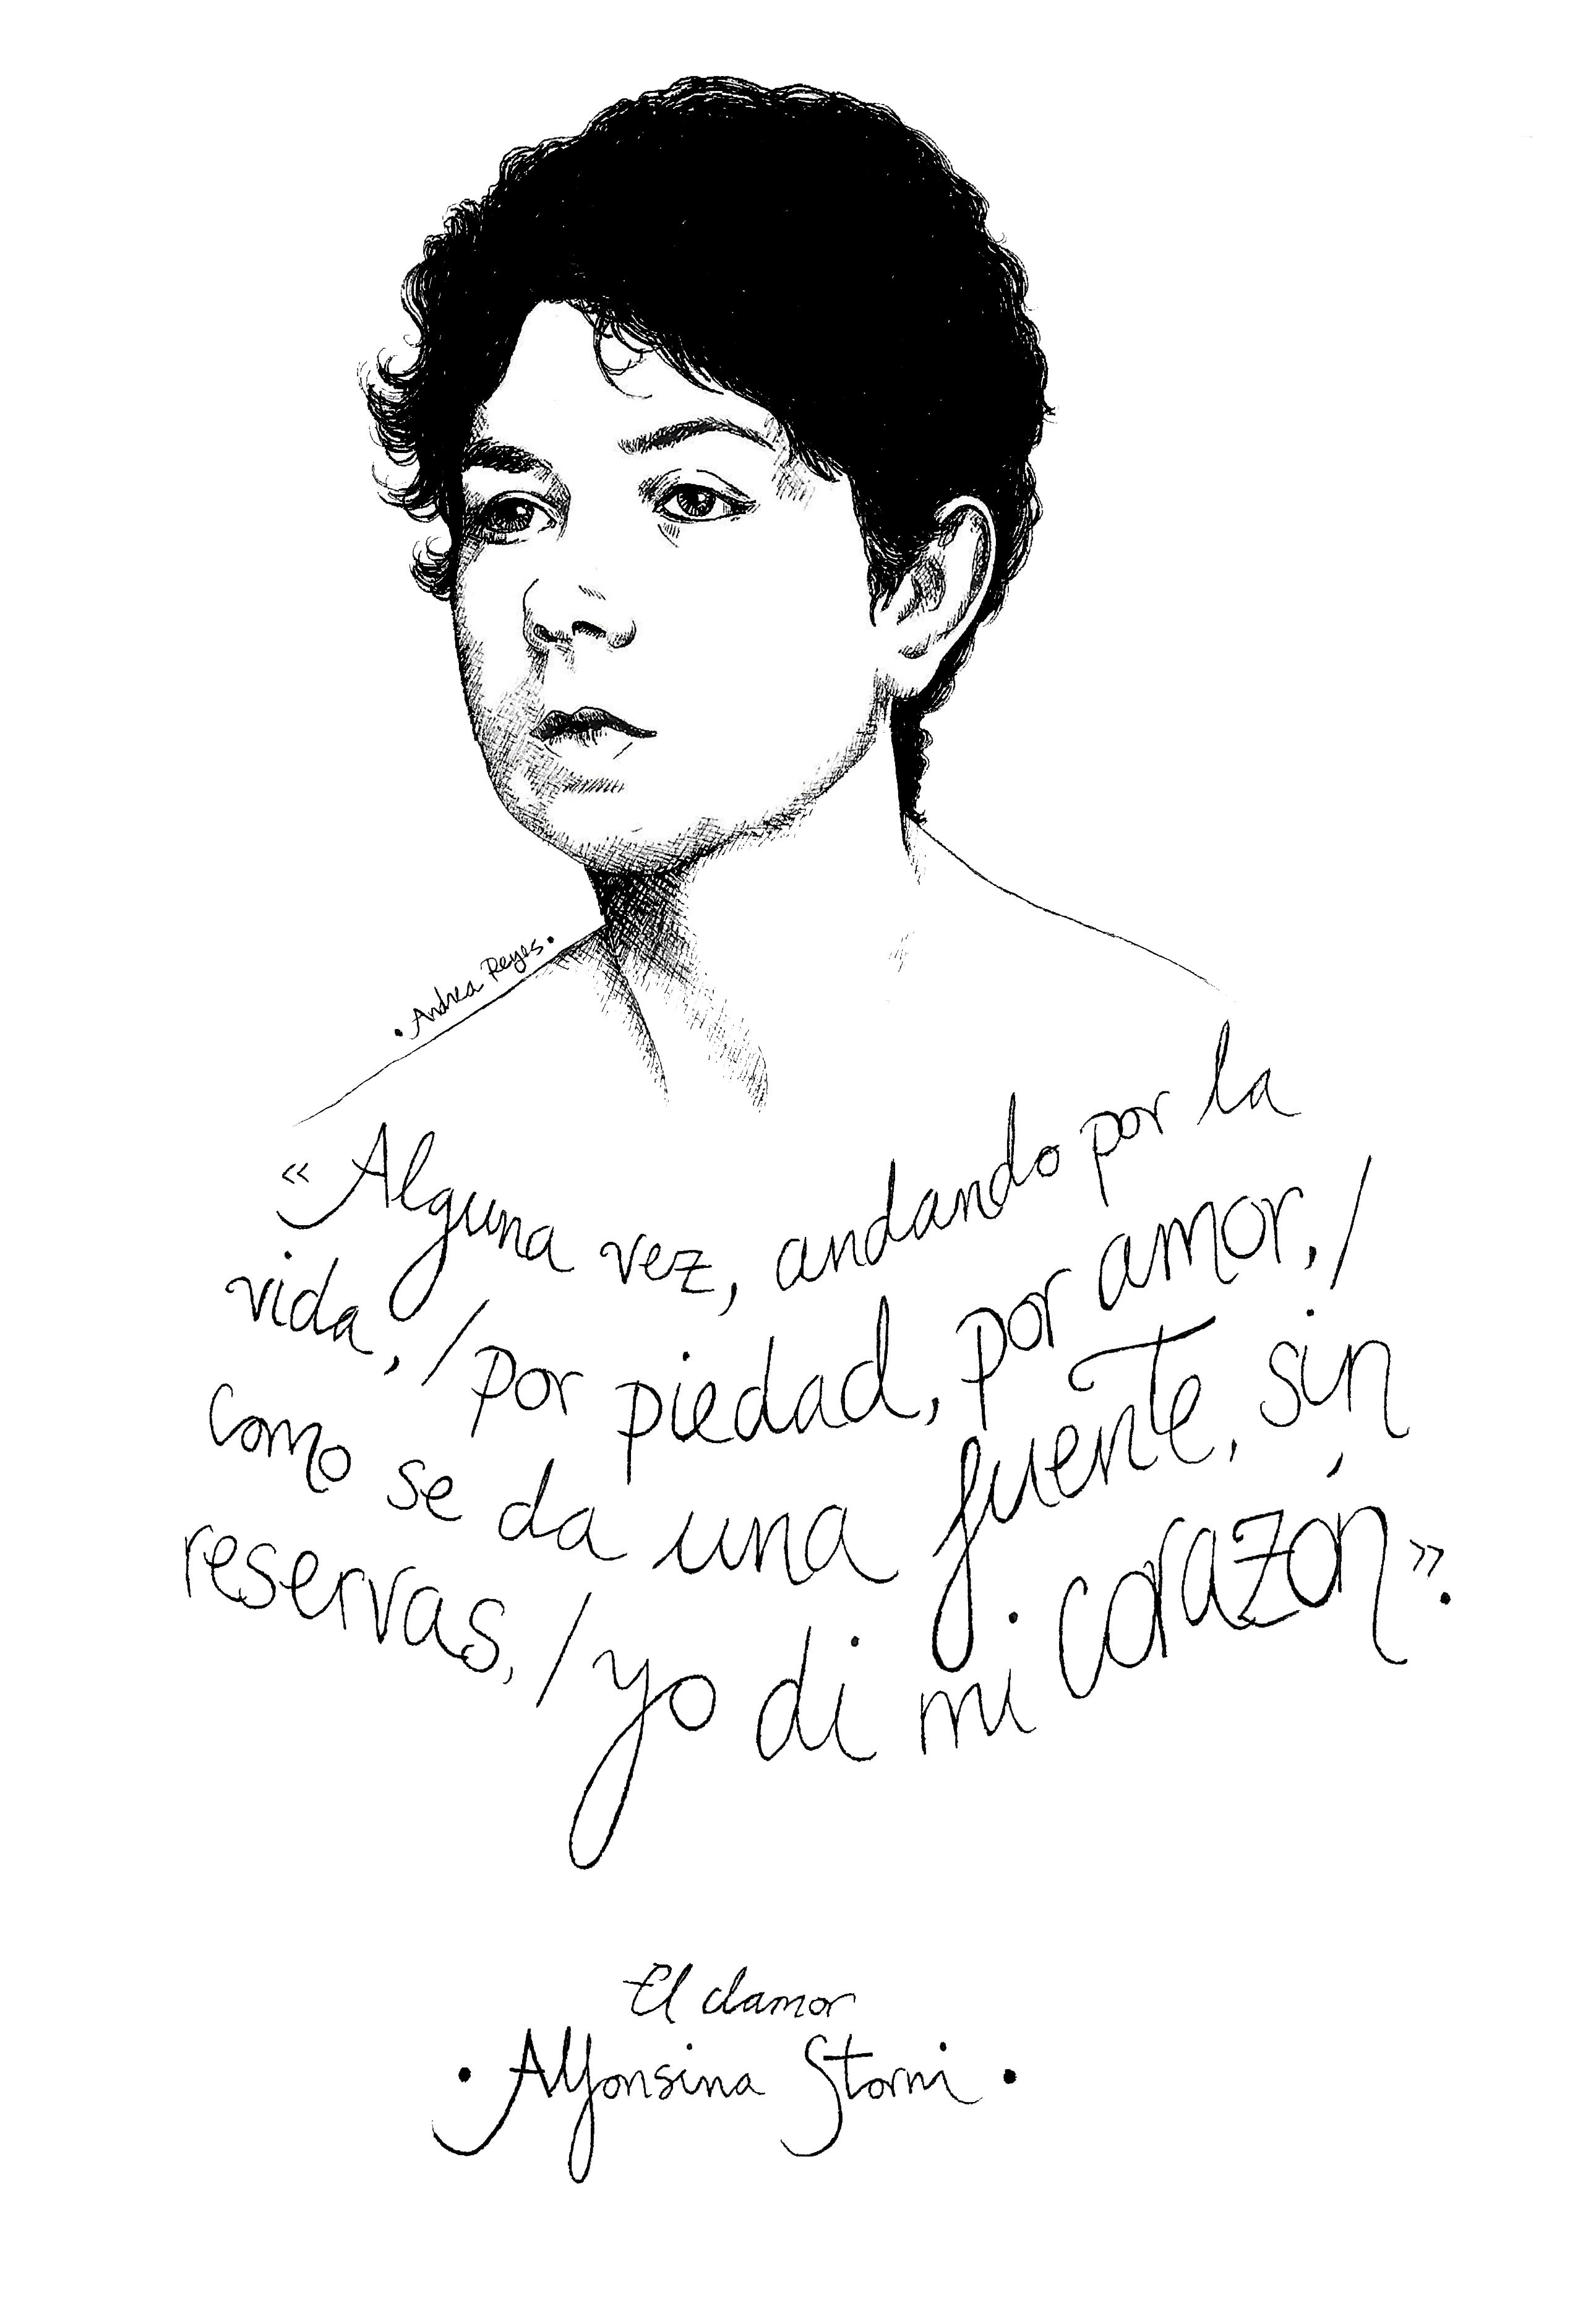 • Andrea Reyes •
«Alguna vez, andando por la
vida, / por piedad, por amor, /
como se da una fuente, sin
reservas, / yo di mi corazón».
El clamor
• Alfonsina Storni •